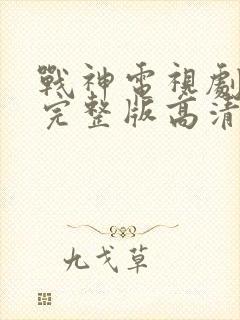 戰神電視劇
完整版高清
九戈草